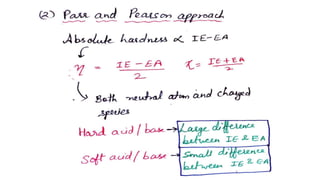 (2) Parr and Pearson approach
Absolute hardness ∝ IE-EA
η = IE-EA / 2 χ = IE+EA / 2
Both neutral atom and charged
species
Hard acid/base → Large difference
between IE & EA
Soft acid/base → Small difference
between IE & EA